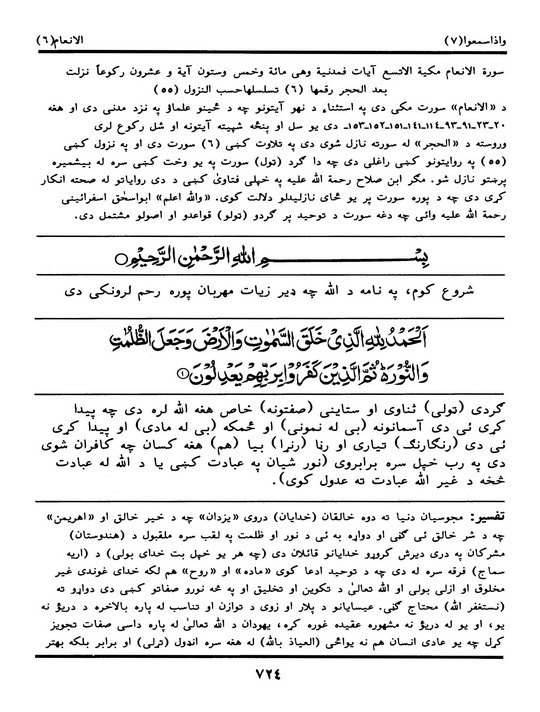 واذاسمعوا(۷)
الانعام(۶)
سورة الانعام مكية الاتسع آيات فمدنية وهى مائة وخمس وستون آية و عشرون ركوعاً نزلت
بعد الحجر رقمها (۶) تسلسلهاحسب النزول (۵۵)
د «الانعام» سورت مکی دی په استثناء د نهو آیتونو چه د ځینو علماؤ په نزد مدنی دی او هغه
۲۰ـ۲۳ـ۹۱ـ۹۳ـ۱۱۴ـ۱۴۱ـ۱۵۱ـ۱۵۲ـ۱۵۳ـ دی یو سل او پنځه شپیته آیتونه او شل رکوع لری
وروسته د «الحجر» له سورته نازل شوی دی په تلاوت کښی (۶) سورت دی او په نزول کښی
(۵۵) په روایتونو کښی راغلی دی چه دا گرد (ټول) سورت په یو وخت کښی سره له بیشمیره
پرښتو نازل شو. مگر ابن صلاح رحمة الله علیه په خپلی فتاویٰ کښی د دی روایاتو له صحته انکار
کړی دی چه د پوره سورت پر یو ځای نازلیدلو دلالت کوی. «والله اعلم» ابواسحٰق اسفرائینی
رحمة الله علیه وائی چه دغه سورت د توحید پر گردو (ټولو) قواعدو او اصولو مشتمل دی.
بِسْمِ اللهِ الرَّحْمٰنِ الرَّحِيْمِ○
شروع کوم، په نامه د الله چه ډیر زیات مهربان پوره رحم لرونکی دی
اَلْحَمْدُ لِلّٰهِ الَّذِىْ خَلَقَ السَّمٰوٰتِ وَالْاَرْضَ وَجَعَلَ الظُّلُمٰتِ
وَالنُّوْرَ ثُمَّ الَّذِيْنَ كَفَرُوْا بِرَبِّهِمْ يَعْدِلُوْنَ ①
گردی (ټولی) ثناوی او ستاینی (صفتونه) خاص هغه الله لره دی چه پیدا
کړی ئی دی آسمانونه (بی له نمونی) او ځمکه (بی له مادی) او پیدا کړی
ئی دی (رنگارنگ) تیاری او رڼا (رنړا) بیا (هم) هغه کسان چه کافران شوی
دی په رب خپل سره برابروی (نور شیان په عبادت کښی یا د الله له عبادت
څخه د غیر الله عبادت ته عدول کوی).
تفسیر: مجوسیان دنیا ته دوه خالقان (خدایان) دروی «یزدان» چه د خیر خالق او «اهریمن»
چه د شر خالق ئی گڼی او دواړه به ئی د نور او ظلمت په لقب سره ملقبول د (هندوستان)
مشرکان په دری دیرش کروړو خدایانو قائلان دی (چه هر یو خپل بت خدای بولی) د (اریه
سماج) فرقه سره له دی چه د توحید ادعا کوی «ماده» او «روح» هم لکه خدای غوندی غیر
مخلوق او ازلی بولی او الله تعالیٰ د تکوین او تخلیق او په څه نورو صفاتو کښی دی دواړو ته
(نستغفر الله) محتاج گڼی. عیسایانو د پلار او زوی د توازن او تناسب له پاره بالاخره د دریؤ نه
یو، او یو له دریؤ نه مشهوره عقیده غوره کړه، یهودان د الله تعالیٰ له پاره داسی صفات تجویز
کړل چه یو عادی انسان هم نه یواځی (العیاذ بالله) له هغه سره انډول (ترلی) او برابر بلکه بهتر
۷۲۴